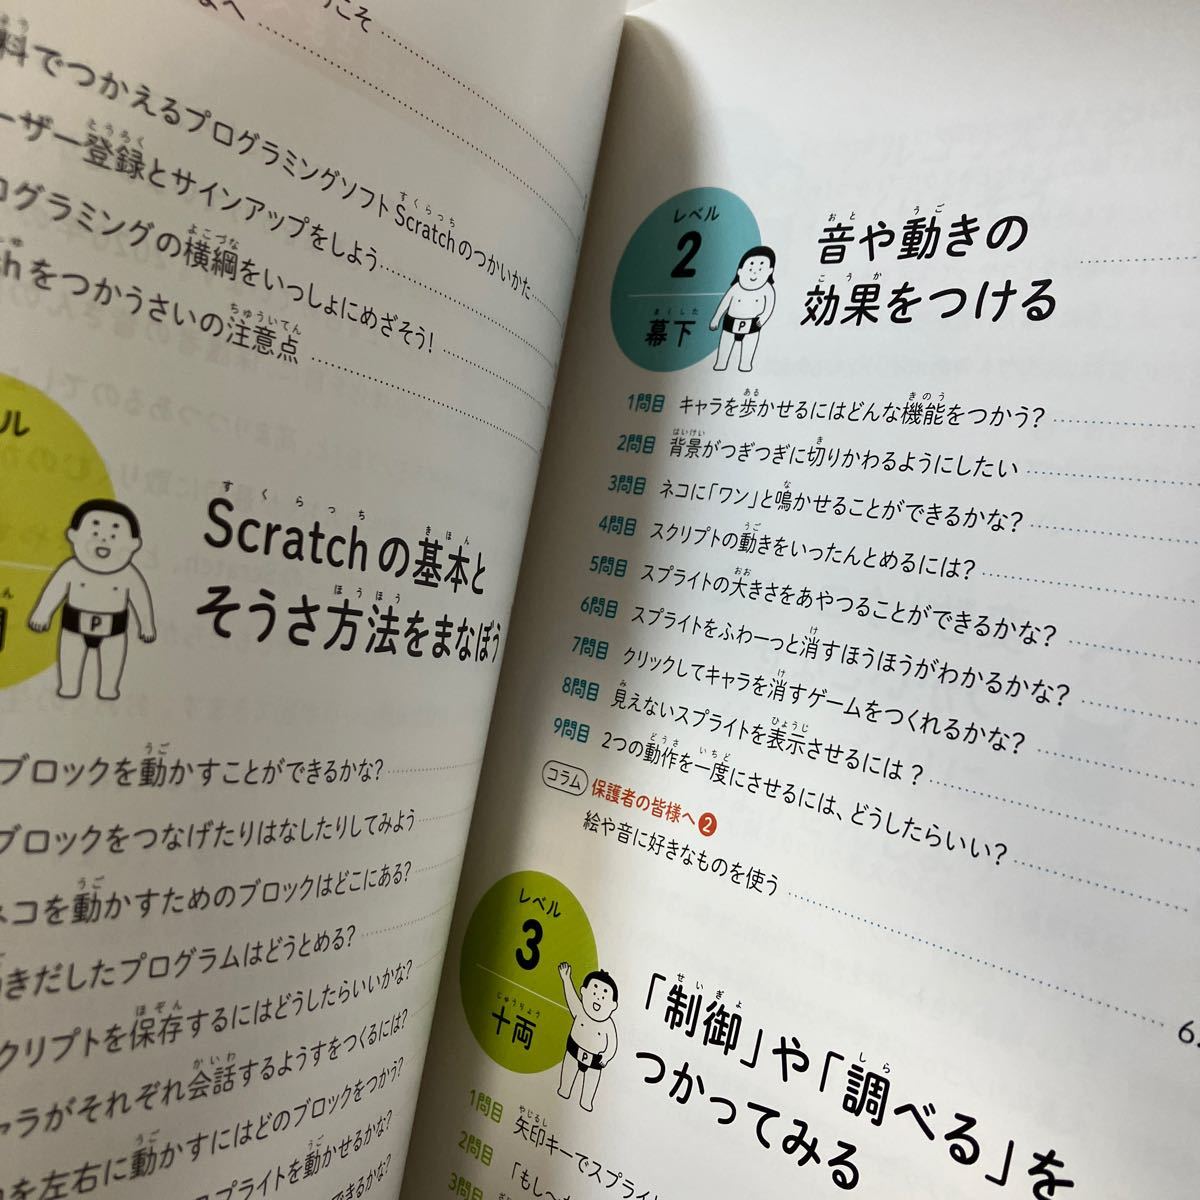 こそ
へ
料でつかえるプログラミングソフトScratchのつかいかた
ーザー登録とサインアップをしよう
ログラミングの横綱をいっしょにめざそう!
chをつかうさいの注意点
ル
Scratchの基本と
そうさ方法をまなぼう
ブロックを動かすことができるかな?
ブロックをつなげたりはなしたりしてみよう
ネコを動かすためのブロックはどこにある?
きだしたプログラムはどうとめる?
クリプトを保存するにはどうしたらいいかな?
ャラがそれぞれ会話するようすをつくるには?
を左右に動かすにはどのブロックをつかう?
スプライトを動かせるかな?
できるかな?
レベル
2
幕下
音や動きの
効果をつける
1問目 キャラを歩かせるにはどんな機能をつかう?
2問目 背景がつぎつぎに切りかわるようにしたい
3問目 ネコに「ワン」と鳴かせることができるかな?
4問目 スクリプトの動きをいったんとめるには?
5問目 スプライトの大きさをあやつることができるかな?
6問目 スプライトをふわーっと消すほうほうがわかるかな?
7問目 クリックしてキャラを消すゲームをつくれるかな?
8問目 見えないスプライトを表示させるには?
9問目 2つの動作を一度にさせるには、どうしたらいい?
コラム 保護者の皆様へ2
絵や音に好きなものを使う
レベル
3
十両
「制御」や「調べる」を
つかってみる
1問目 矢印キーでスプライ
2問目 「もし〜
3問目